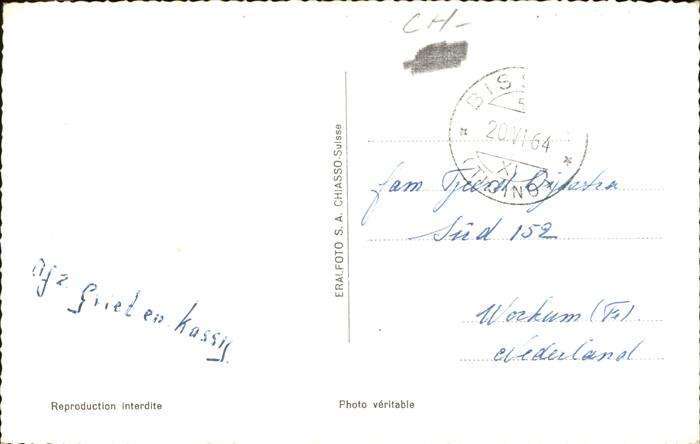 CH-
BISS
20.VI.64
XI
(TICINO)
fam Tjeerd
Süd 152
Workum (Fr).
Nederland
Afz
Griet en
ERALFOTO S.A. CHIASSO-Suisse
Reproduction interdite
Photo véritable